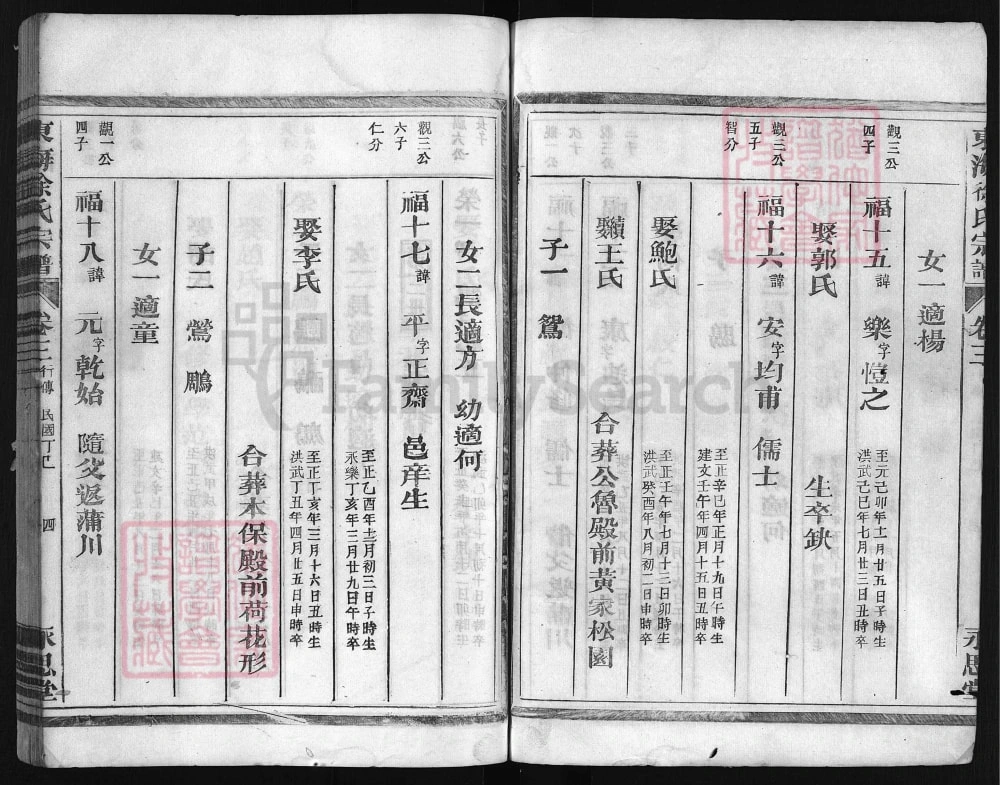 東海徐氏宗譜
卷三
永思堂
女一適楊
觀三公
四子
福十五 諱 樂 字 愷之
至元己卯年十一月廿五日子時生
洪武己巳年七月廿三日丑時卒
娶郭氏
生卒缺
觀三公
五子
智分
福十六 諱 安 字 均甫 儒士
至正辛巳年正月十九日午時生
建文壬午年四月十五日丑時卒
娶鮑氏
至正壬午年七月十二日卯時生
洪武癸酉年八月初二日申時卒
續王氏
合葬公魯殿前黃家松園
子一 鴛
女二長適方 幼適何
觀三公
六子
仁分
福十七 諱 平 字 正齋 邑庠生
至正乙酉年十二月初三日子時生
永樂丁亥年三月廿九日午時卒
娶李氏
至正丁亥年三月十六日丑時生
洪武丁丑年四月廿五日申時卒
合葬本保殿前荷花形
子二 鶯 鵰
女一適童
觀一公
四子
福十八 諱 元 字 乾始 隨父返蒲川
東海徐氏宗譜
卷三
行傳
民國丁巳
四
永思堂
FamilySearch